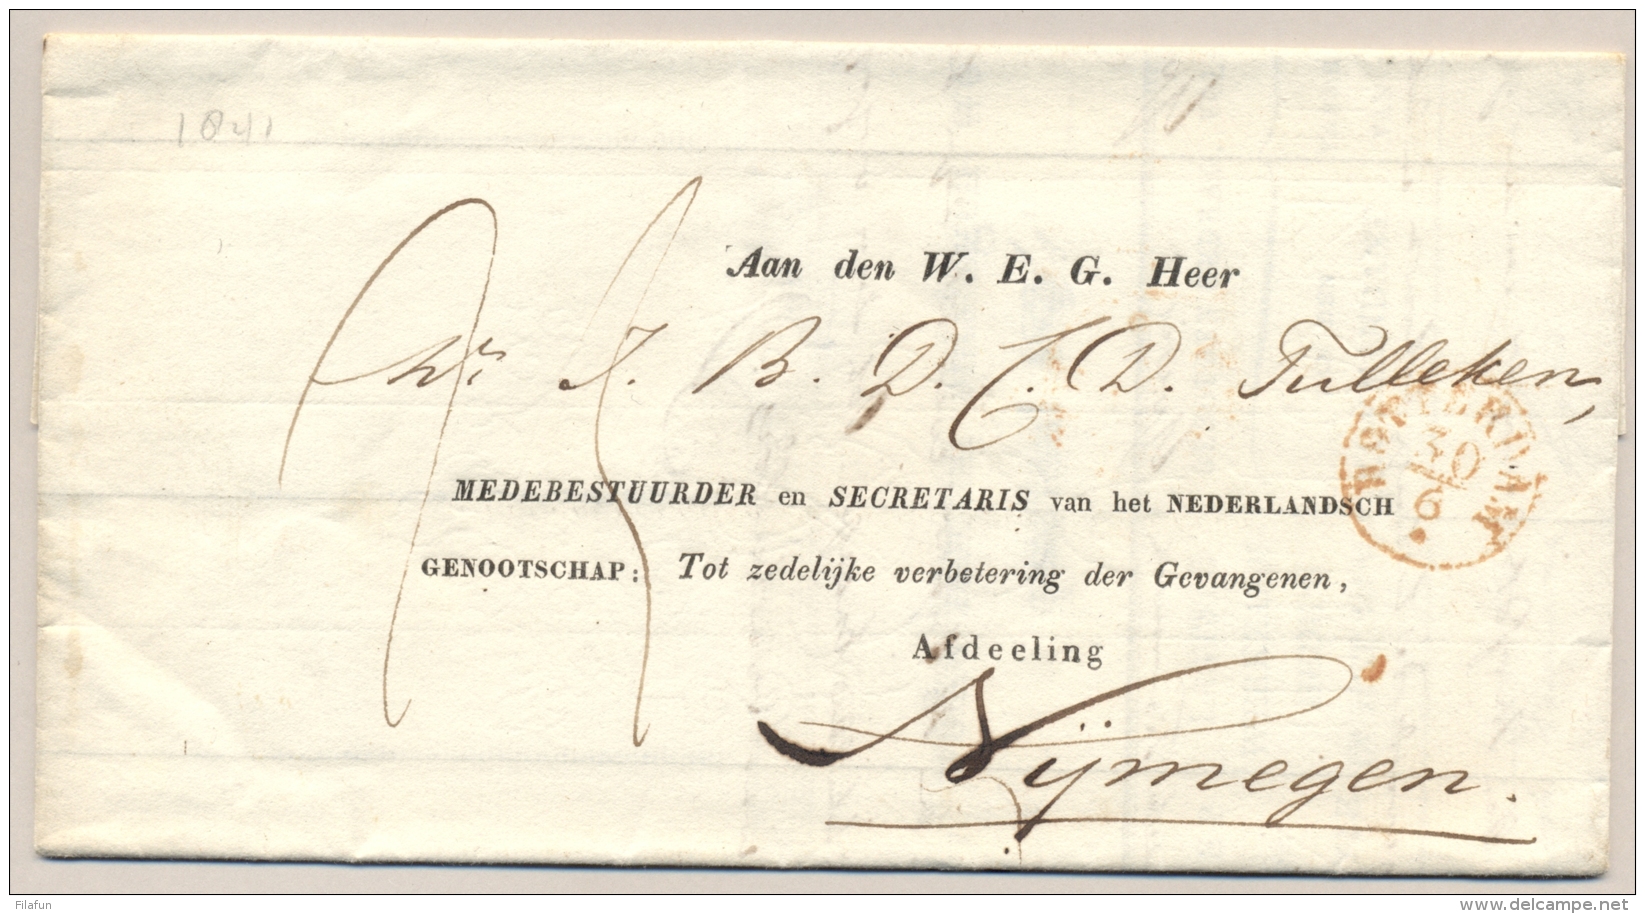 1841
Aan den W. E. G. Heer
Mr. J. B. D. C. D. Tulleken,
ROTTERDAM
30
6
MEDEBESTUURDER en SECRETARIS van het NEDERLANDSCH
GENOOTSCHAP: Tot zedelijke verbetering der Gevangenen,
Afdeeling
Nijmegen.
Filafun
www.delcampe.net